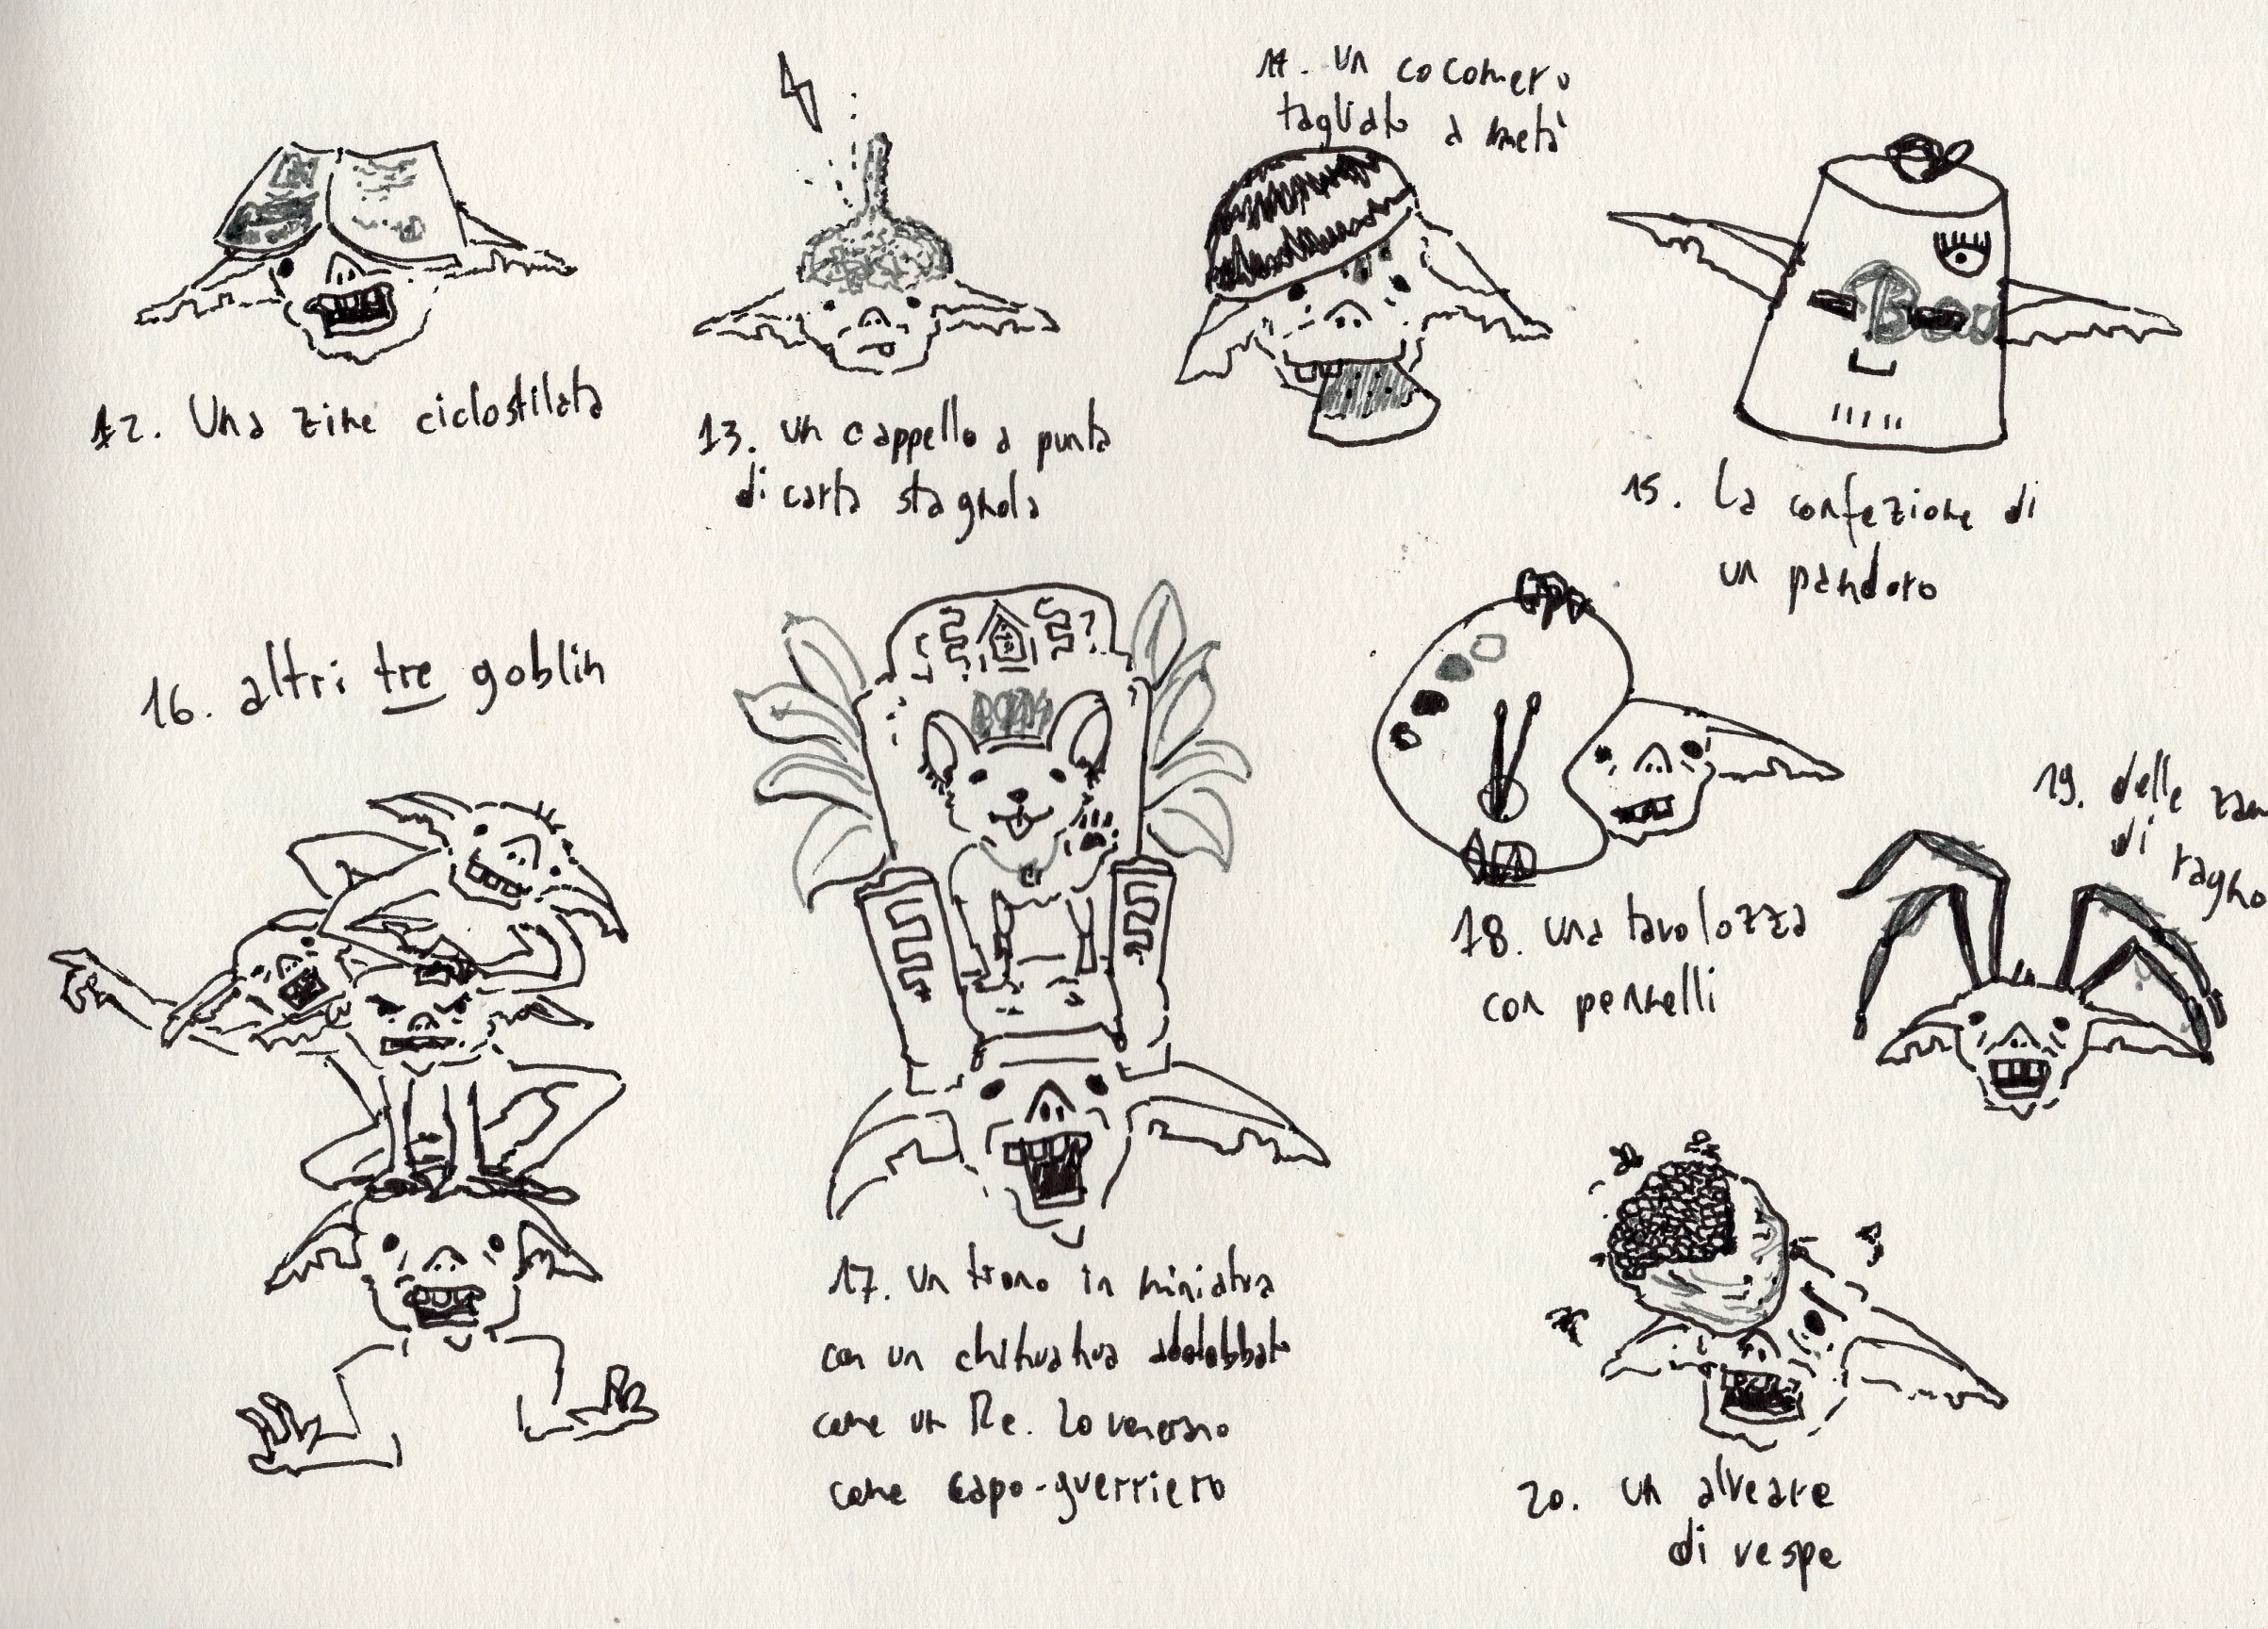 12. Una zine ciclostilata
13. un cappello a punta
di carta stagnola
14. un cocomero
tagliato a metà
15. La confezione di
un pandoro
16. altri tre goblin
17. un trono in miniatura
con un chihuahua addobbato
come un Re. Lo venerano
come capo-guerriero
18. una tavolozza
con pennelli
19. delle zam
di
ragno
20. un alveare
di vespe